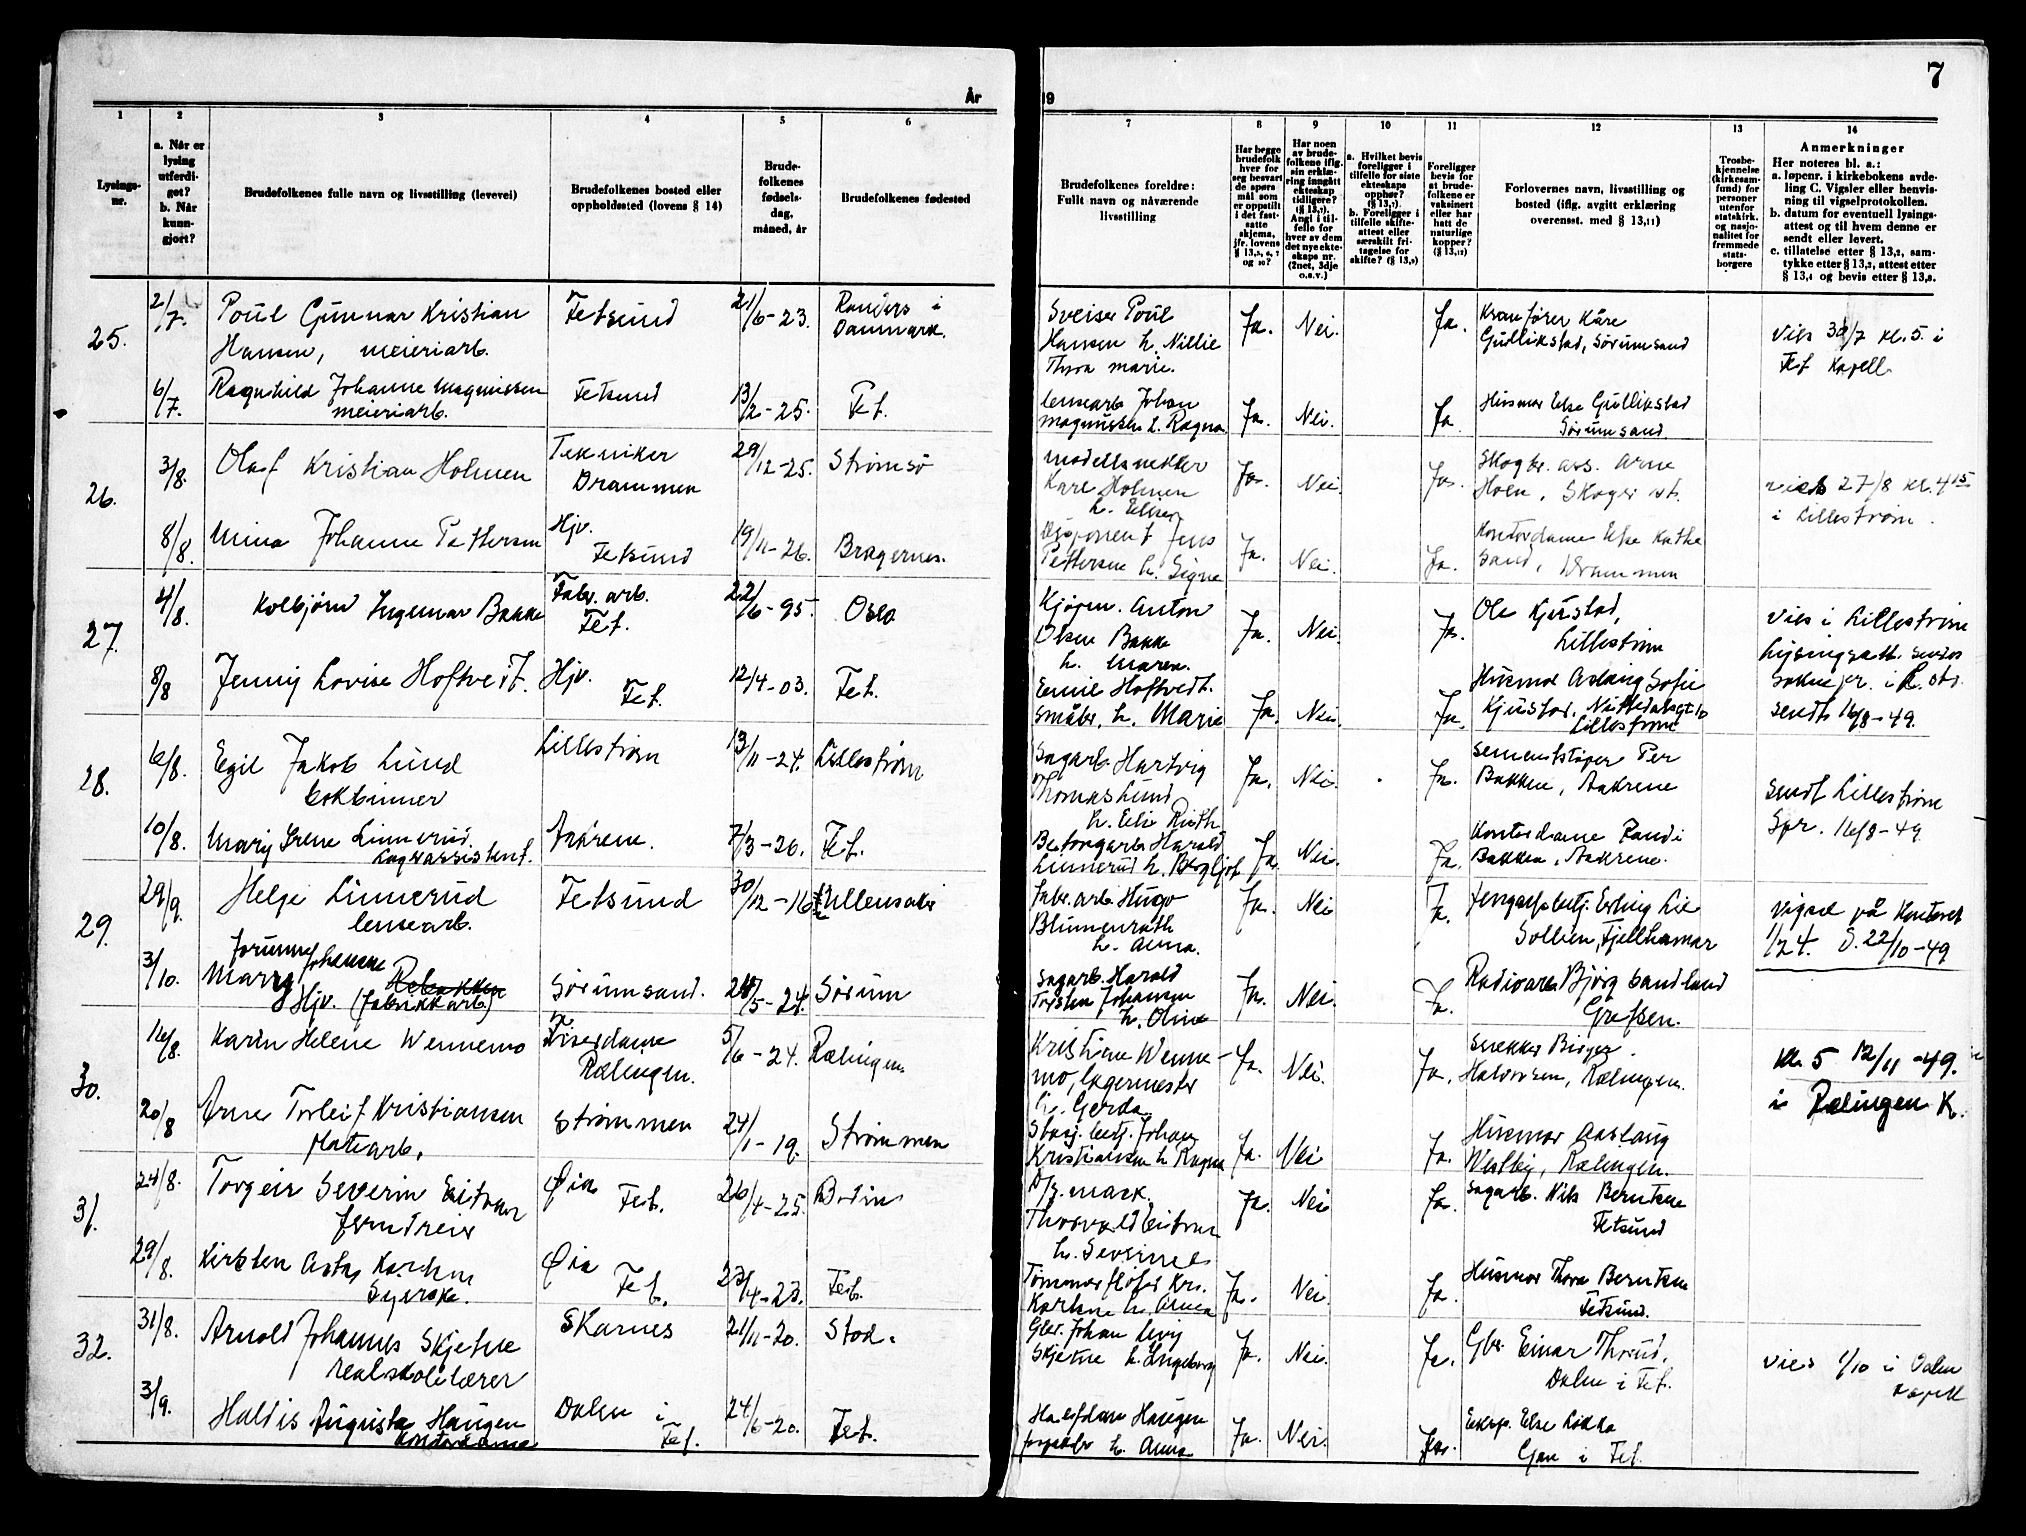 7
År
19
1
2
3
4
5
6
7
8
9
10
11
12
13
14
Lysings-
nr.
a. Når er
lysing
utferdi-
get?
b. Når
kunn-
gjort?
Brudefolkenes fulle navn og livsstilling (levevei)
Brudefolkenes bosted eller
oppholdssted (lovens § 14)
Brude-
folkenes
fødsels-
dag,
måned, år
Brudefolkenes fødested
Brudefolkenes foreldre:
Fullt navn og nåværende
livsstilling
Har begge
brudefolk
hver for
seg besvart
de spørs-
mål som
er oppstilt
i det fast-
satte
skjema,
jfr. lovens
Har noen
av brude-
folkene iflg.
sin erklæ-
ring inngått
ekteskap
tidligere?
(§ 13,7).
Angi i til-
felle for
hver av dem
det nye ekte-
skaps nr.
(2net, 3dje
o.s.v.)
a. Hvilket bevis
foreligger i
tilfelle for siste
ekteskaps
opphør?
(§ 13,7).
b. Foreligger i
tilfelle skifte-
attest eller
særskilt fri-
tagelse for
skifte? (§ 13,9)
Foreligger
bevis for
at brude-
folkene er
vaksinert
eller har
hatt de
naturlige
kopper?
Forlovernes navn, livsstilling og
bosted (iflg. avgitt erklæring
overensst. med § 13,11)
Trosbe-
kjennelse
(kirkesam-
fund) for
personer
utenfor
statskirk.
og nasjo-
nalitet for
fremmede
stats-
borgere
Anmerkninger
Her noteres bl. a.:
a. løpenr. i kirkebokens avde-
ling C. Vigsler eller henvis-
ning til vigselprotokollen.
b. datum for eventuell lysings-
attest og til hvem denne er
sendt eller levert.
c. tillatelse etter § 13,2, sam-
tykke etter § 13,3, attest etter
§ 13,4 og bevis etter § 13,8.
25.
2/7.
Poul Gunnar Kristian
Hansen, meieriarb.
Fetsund
21/6-23.
Randers i
Danmark.
Sveiser Poul
Hansen h. Nillie
Thora Marie.
Ja. Nei. Ja.
Kranfører Kåre
Gullikstad, Sørumsand
Vies 30/7 kl. 5. i
Fet Kapell
6/7.
Ragnhild Johanne Magnussen
meieriarb.
Fetsund
13/12-25.
Fet.
lensearb. Johan
Magnussen h. Ragna
Ja. Nei. Ja
Husmor Else Gullikstad
Sørumsand.
26.
3/8.
Olaf Kristian Holmen
Tekniker
Drammen
29/12-25.
Strømsø
modellsnekker
Karl Holmen
h. Ellen
Ja. Nei. Ja.
Skogbr. ass. Arne
Holm, Skoger st.
vies 27/8 kl. 4 15
i Lillestrøm.
8/8.
Mina Johanne Pettersen
Hjv.
Fetsund
19/11-26.
Bragernes.
Disponent Jens
Pettersen h. Signe
Ja. Nei. Ja.
Kontordame Else Kathe
Sand, Drammen
27.
4/8.
Kolbjørn Ingemar Bakke
Fabr. arb.
Fet.
22/6-95.
Oslo
Kjøpm. Anton
Olsen Bakke
h. Maren.
Ja. Nei. Ja.
Ole Kjustad,
Lillestrøm
Vies i Lillestrøm
Lysingsatt. sendes
sokne pr. i L. str.
sendt 16/8-49.
8/8
Jenny Lovise Hoftvedt.
Hjv.
Fet.
12/4-03.
Fet.
Emil Hoftvedt.
småbr. h. Marie
Ja. Nei. Ja
Husmor Aslaug Sofie
Kjustad, Nittedalsgt 10
Lillestrøm
28.
6/8.
Egil Jakob Lund
bokbinner
Lillestrøm
13/11-24.
Lillestrøm
Sagarb. Hartvig
Thomas Lund
h. Elie Ruth
Ja. Nei. Ja.
Sementstøper Per
Bakken, Aakrene
Sendt Lillestrøm
Spr. 16/8-49
10/8.
Mary Irene Linnerud.
Lagrassistent.
Aakrene.
7/3-26.
Fet.
Betongarb. Harald
Linnerud h. Bergljot
Ja. Nei. Ja.
Kontordame Randi
Bakken, Aakrene.
29.
29/9.
Helge Linnerud
lensearb.
Fetsund
30/12-16
Ullensaker
fabr. arb. Hugo
Blumenrath
h. Anna.
Ja. Nei Ja.
fengselsbetj. Erling Lie
Sollien, Fjellhamar
Vigsel på Kontoret
1/24. D. 22/10-49
3/10.
Jorunn Johanne
Marry
Hjv. (fabrikkarb)
Sørumsand.
5-24.
Sørum
Sagarb. Harald
Torsten Johansen
h. Oline
Ja. Nei. Ja.
Bjørg Sandland
Grefsen.
30.
16/8.
Karin Helene Wennemo
Frisørdame
Rælingen.
5/6-24.
Rælingen
Kristian Wenne-
mo, lagermester
h. Gerda
Ja. Nei. Ja.
Snekker Birger
Halvorsen, Rælingen.
Kl. 5 12/11-49.
i Rælingen K.
20/8
Arne Torleif Kristiansen
Platearb.
Strømmen
24/1-19.
Strømmen
Stasj. betj. Johan
Kristiansen h. Ragna
Ja. Nei Ja.
Husmor Aaslaug
Westby, Rælingen.
31.
24/8.
Torgeir Severin
jerndreier
Øia
Fet.
26/4-25.
Bodin
Thorvald
h. Severine
Ja. Nei Ja.
Sagarb. Nils Berntsen
Fetsund
29/8.
Kirsten Asta Karlsen
Syerske.
Øia
Fet.
Fet.
Tømmerfløter Kr.
Karlsen h. Anna
Ja. Nei. Ja.
Husmor Thora Berntsen
Fetsund.
32.
31/8.
Arnold Johannes Skjetne
realskolelærer
Skarnes
21/11-20.
Stod.
Gbr. Johan Levy
Skjetne h. Ingeborg
Ja. Nei. Ja.
Gbr. Einar Thorud,
Dalen i Fet.
Vies 1/10 i Dalen
Kapell
3/9.
Haldis Augusta Haugen
kontordame
Dalen i
Fet.
24/6-20.
Fet.
Halfdan Haugen
h. Anna
Ja. Nei. Ja.
Eksp. Else Løkka
Gan i Fet.